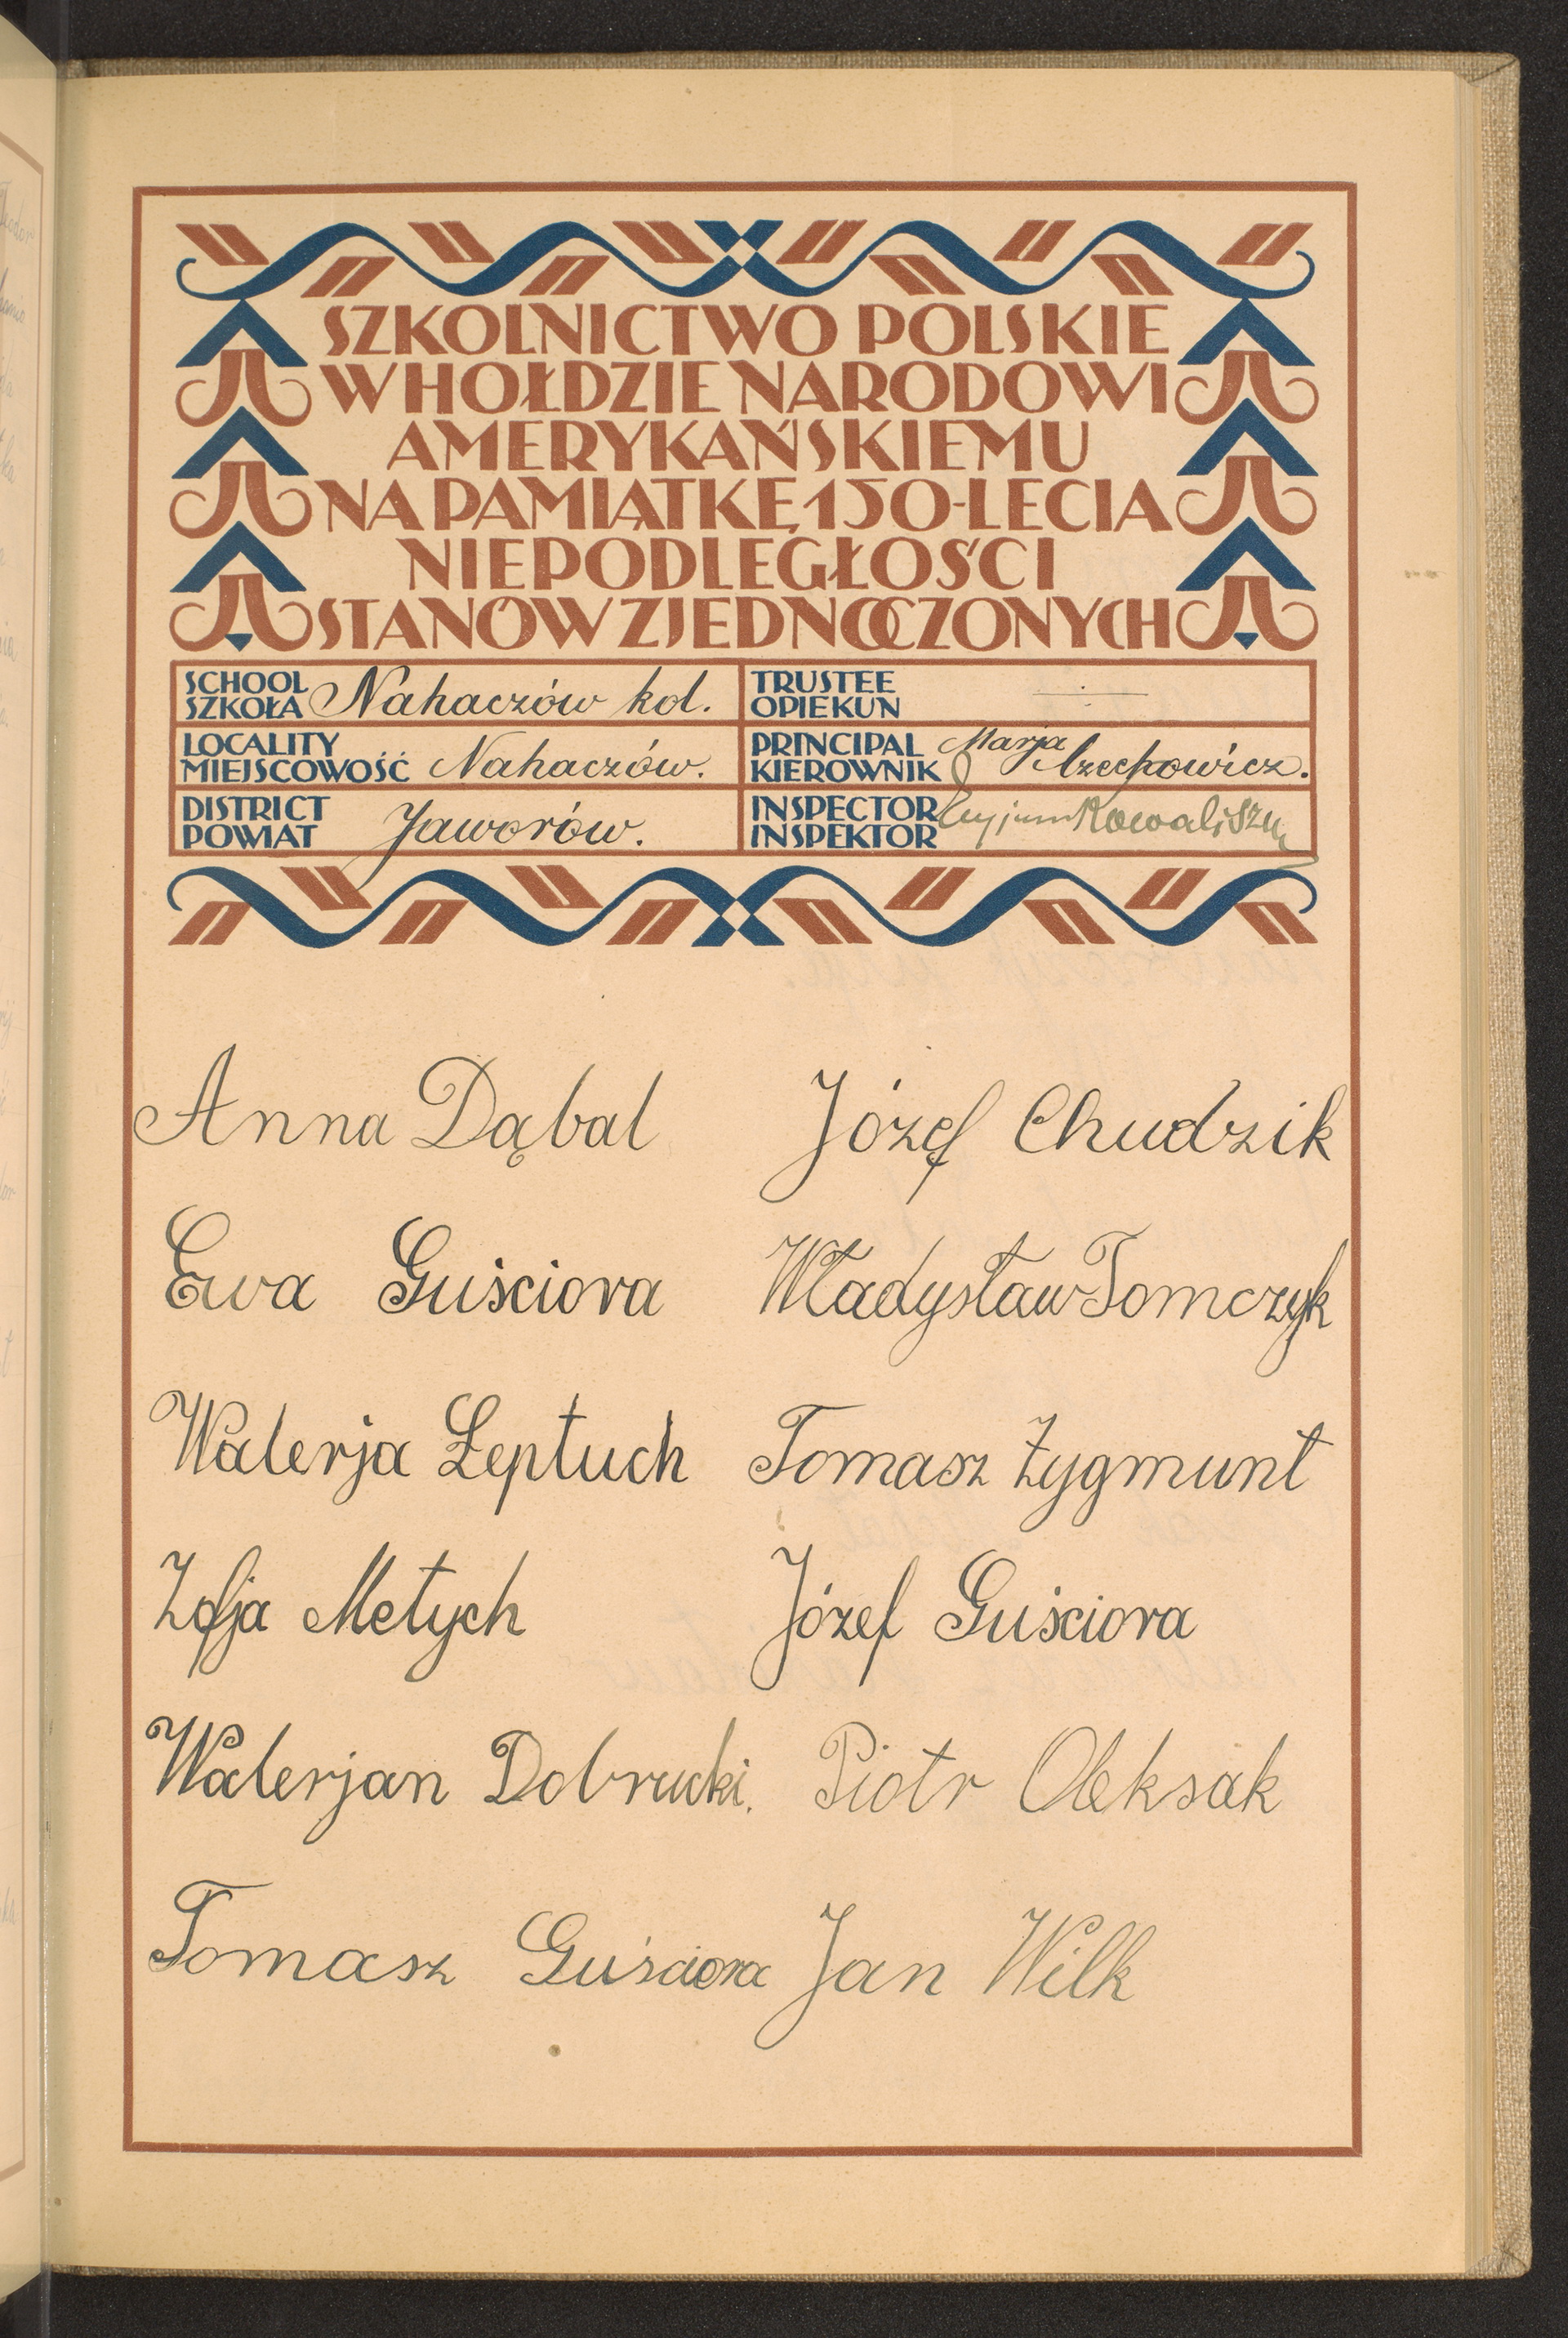 SZKOLNICTWO POLSKIE
W HOŁDZIE NARODOWI
AMERYKAŃSKIEMU
NA PAMIĄTKĘ 150-LECIA
NIEPODLEGŁOŚCI
STANÓW ZJEDNOCZONYCH
SCHOOL
SZKOŁA Nahaczów kol.
TRUSTEE
OPIEKUN
LOCALITY
MIEJSCOWOŚĆ Nahaczów.
PRINCIPAL
KIEROWNIK Marja
DISTRICT
POWIAT Jaworów.
INSPECTOR
INSPEKTOR
Anna Dąbal
Józef Chudzik
Ewa Guściora
Władysław Tomczyk
Walerja Łeptuch
Tomasz Zygmunt
Zofja Metych
Józef Guściora
Walerjan Dobrucki.
Piotr Oleksak
Tomasz Guściora
Jan Wilk